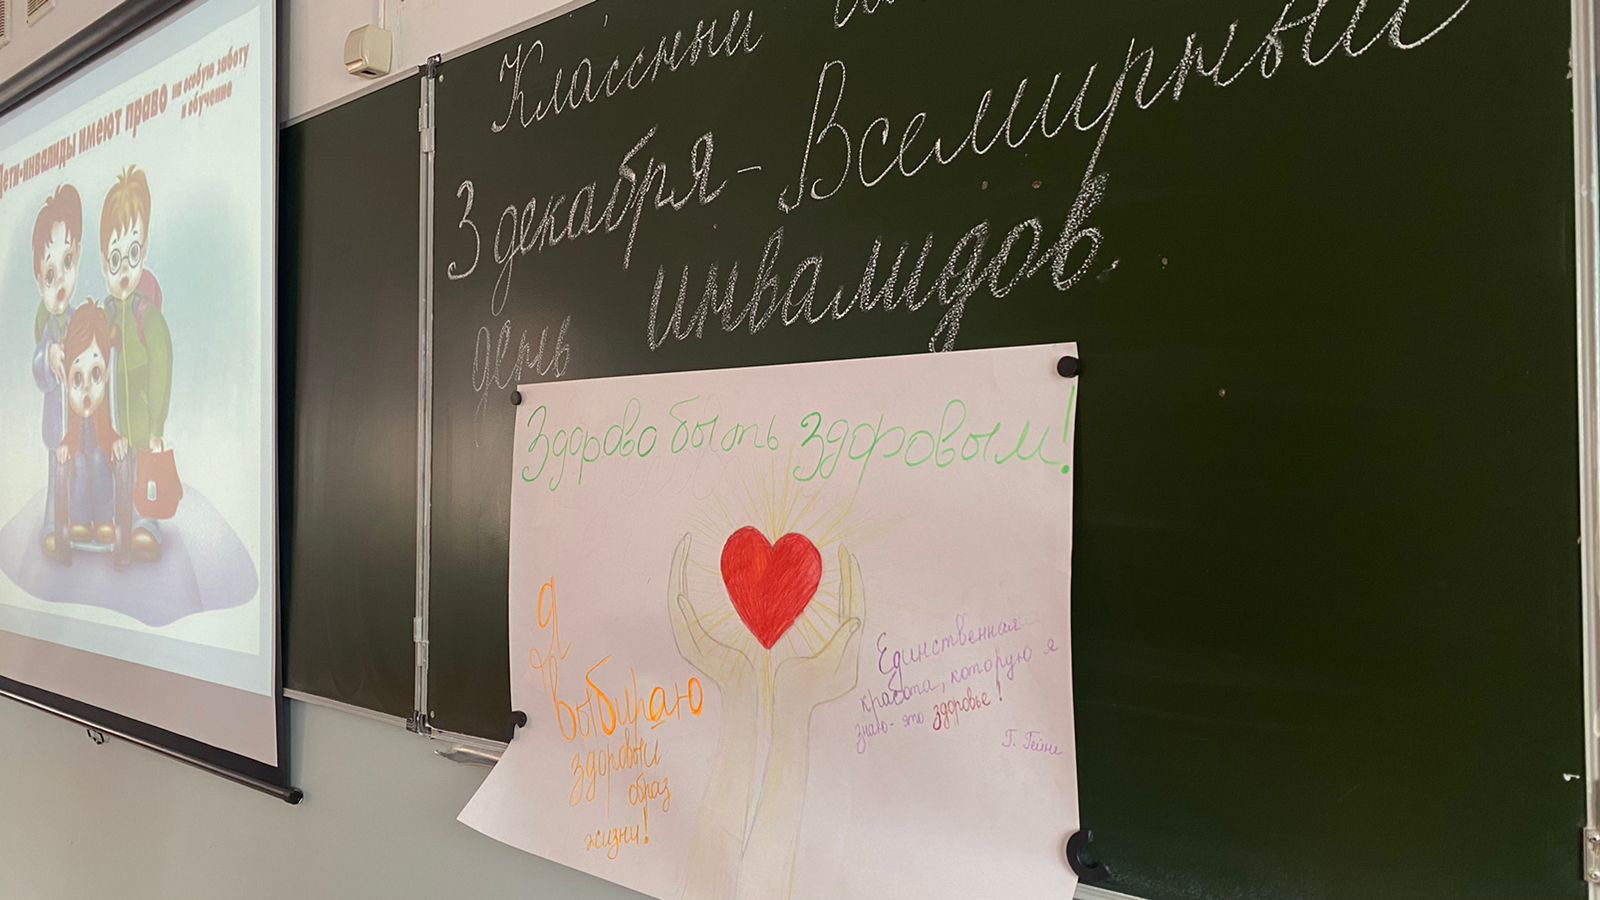 Дети-инвалиды имеют право на особую заботу
и обучение
Классный
3 декабря - Всемирный
день инвалидов
Здорово быть здоровым!
Я
выбираю
здоровый
образ
жизни!
Единственная
красота, которую я
знаю - это здоровье!
Г. Гейне